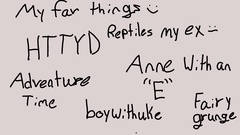 My far things :)
Reptiles my ex :)
HTTYD
Anne With an
"E"
Adveature
Time
boywithuke
Fairy
grunge